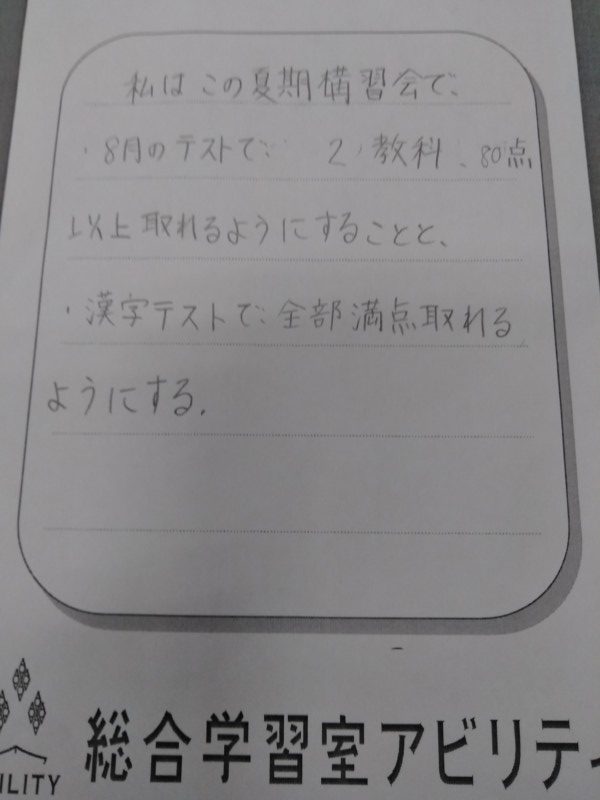 私はこの夏期構習会で、
・8月のテストで、 2教科、80点
以上取れるようにすることと、
・漢字テストで、全部満点取れる
ようにする.
総合学習室アビリティ
ILITY